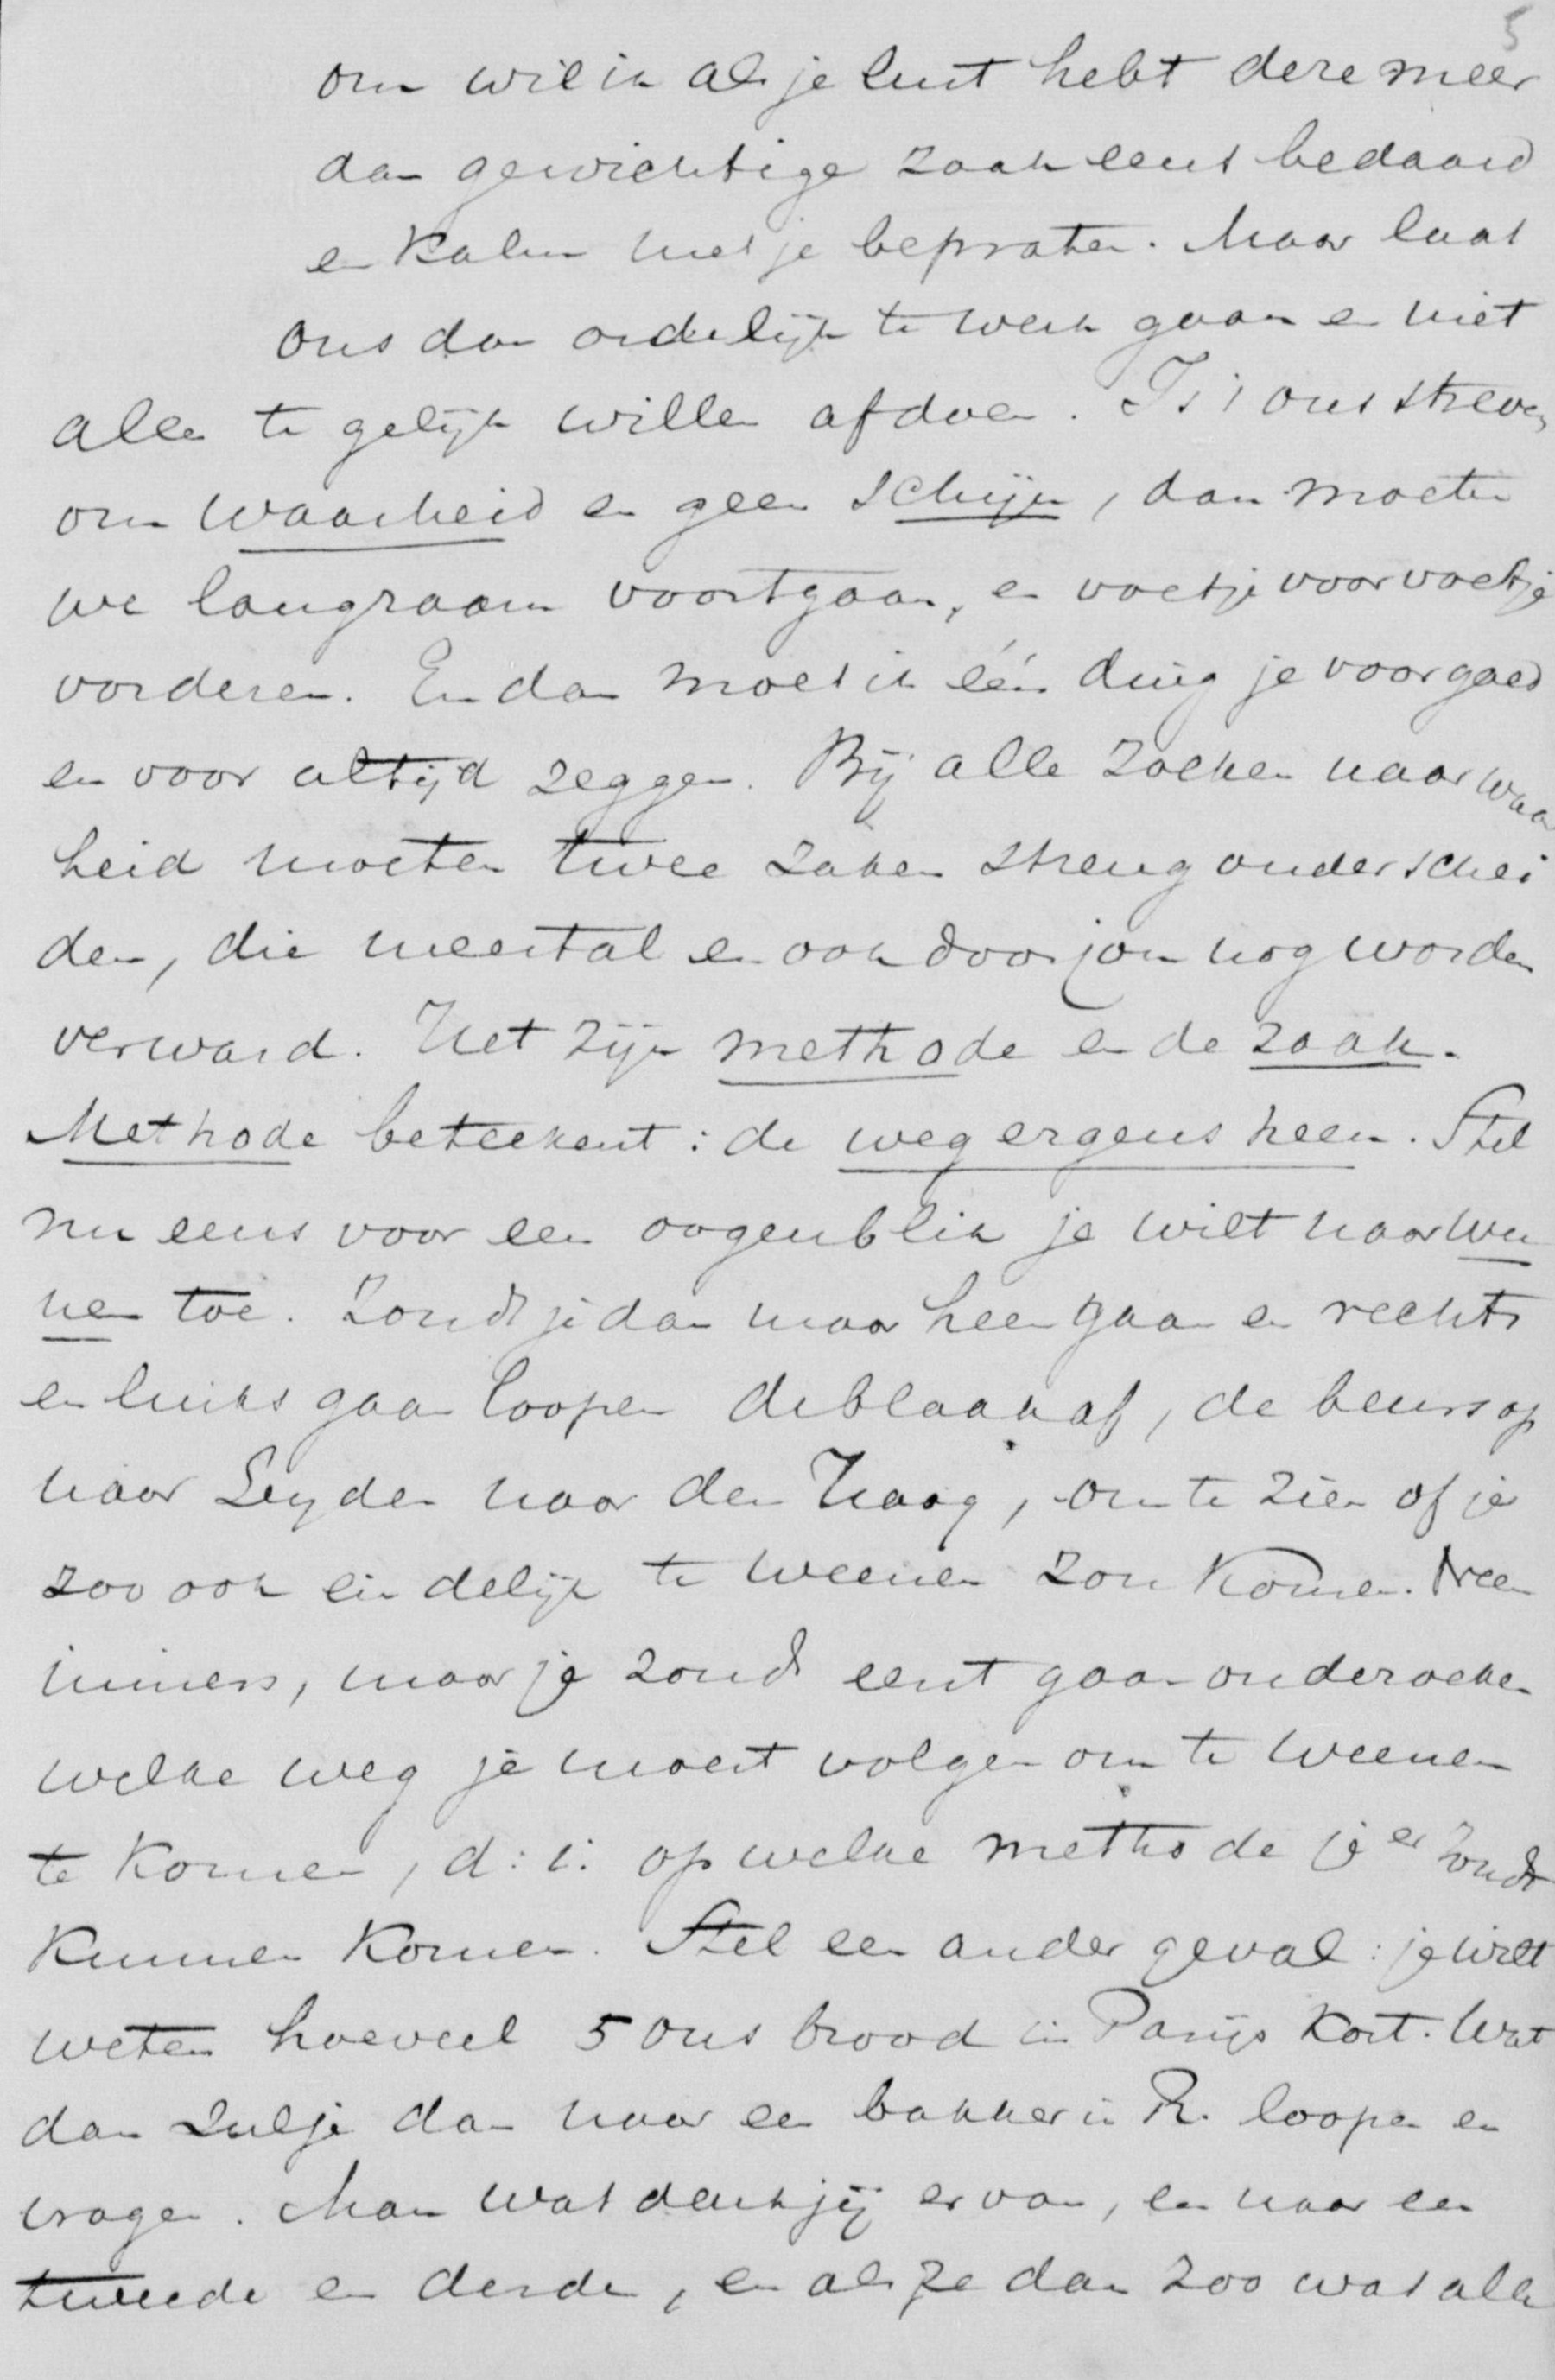 5
om wil ik als je lust hebt deze meer
dan gewichtige zaak eens bedaard
en kalm met je bepraten. Maar laat
ons dan ordelijk te werk gaan en niet
alles te gelijk willen afdoen. Is 't ons streven
om waarheid en geen schijn, dan moeten
we langzaam voortgaan, en voetje voor voetje
vorderen. En dan moet ik één ding je voor goed
en voor altijd zeggen. Bij alle zoeken naar waar
heid moeten twee zaken streng onderschei
den, die meestal en ook door jou nog worden
verward. Het zijn methode en de zaak.
Methode beteekent: de weg ergens heen. Stel
nu eens voor een oogenblik je wilt naar Wee
nen toe. Zoudt je dan maar heen gaan en rechts
en links gaan loopen de blaak af, de beurs op
naar Leyden naar den Haag, om te zien of je
zoo ook eindelijk te Weenen zou komen. Neen
immers, maar je zoudt eerst gaan onderzoeken
welke weg je moest volgen om te Weenen
te komen, d: i: op welke methode je er zoudt
kunnen komen. Stel een ander geval: je wilt
weten hoeveel 5 ons brood in Parijs kost. Wat
dan zul je dan naar een bakker in R. loopen en
vragen. Man wat denk jij ervan, en naar een
tweede en derde, en als ze dan zoo wat alle